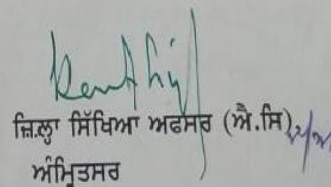 ਜ਼ਿਲ੍ਹਾ ਸਿੱਖਿਆ ਅਫਸਰ (ਐ.ਸਿ)
ਅੰਮ੍ਰਿਤਸਰ